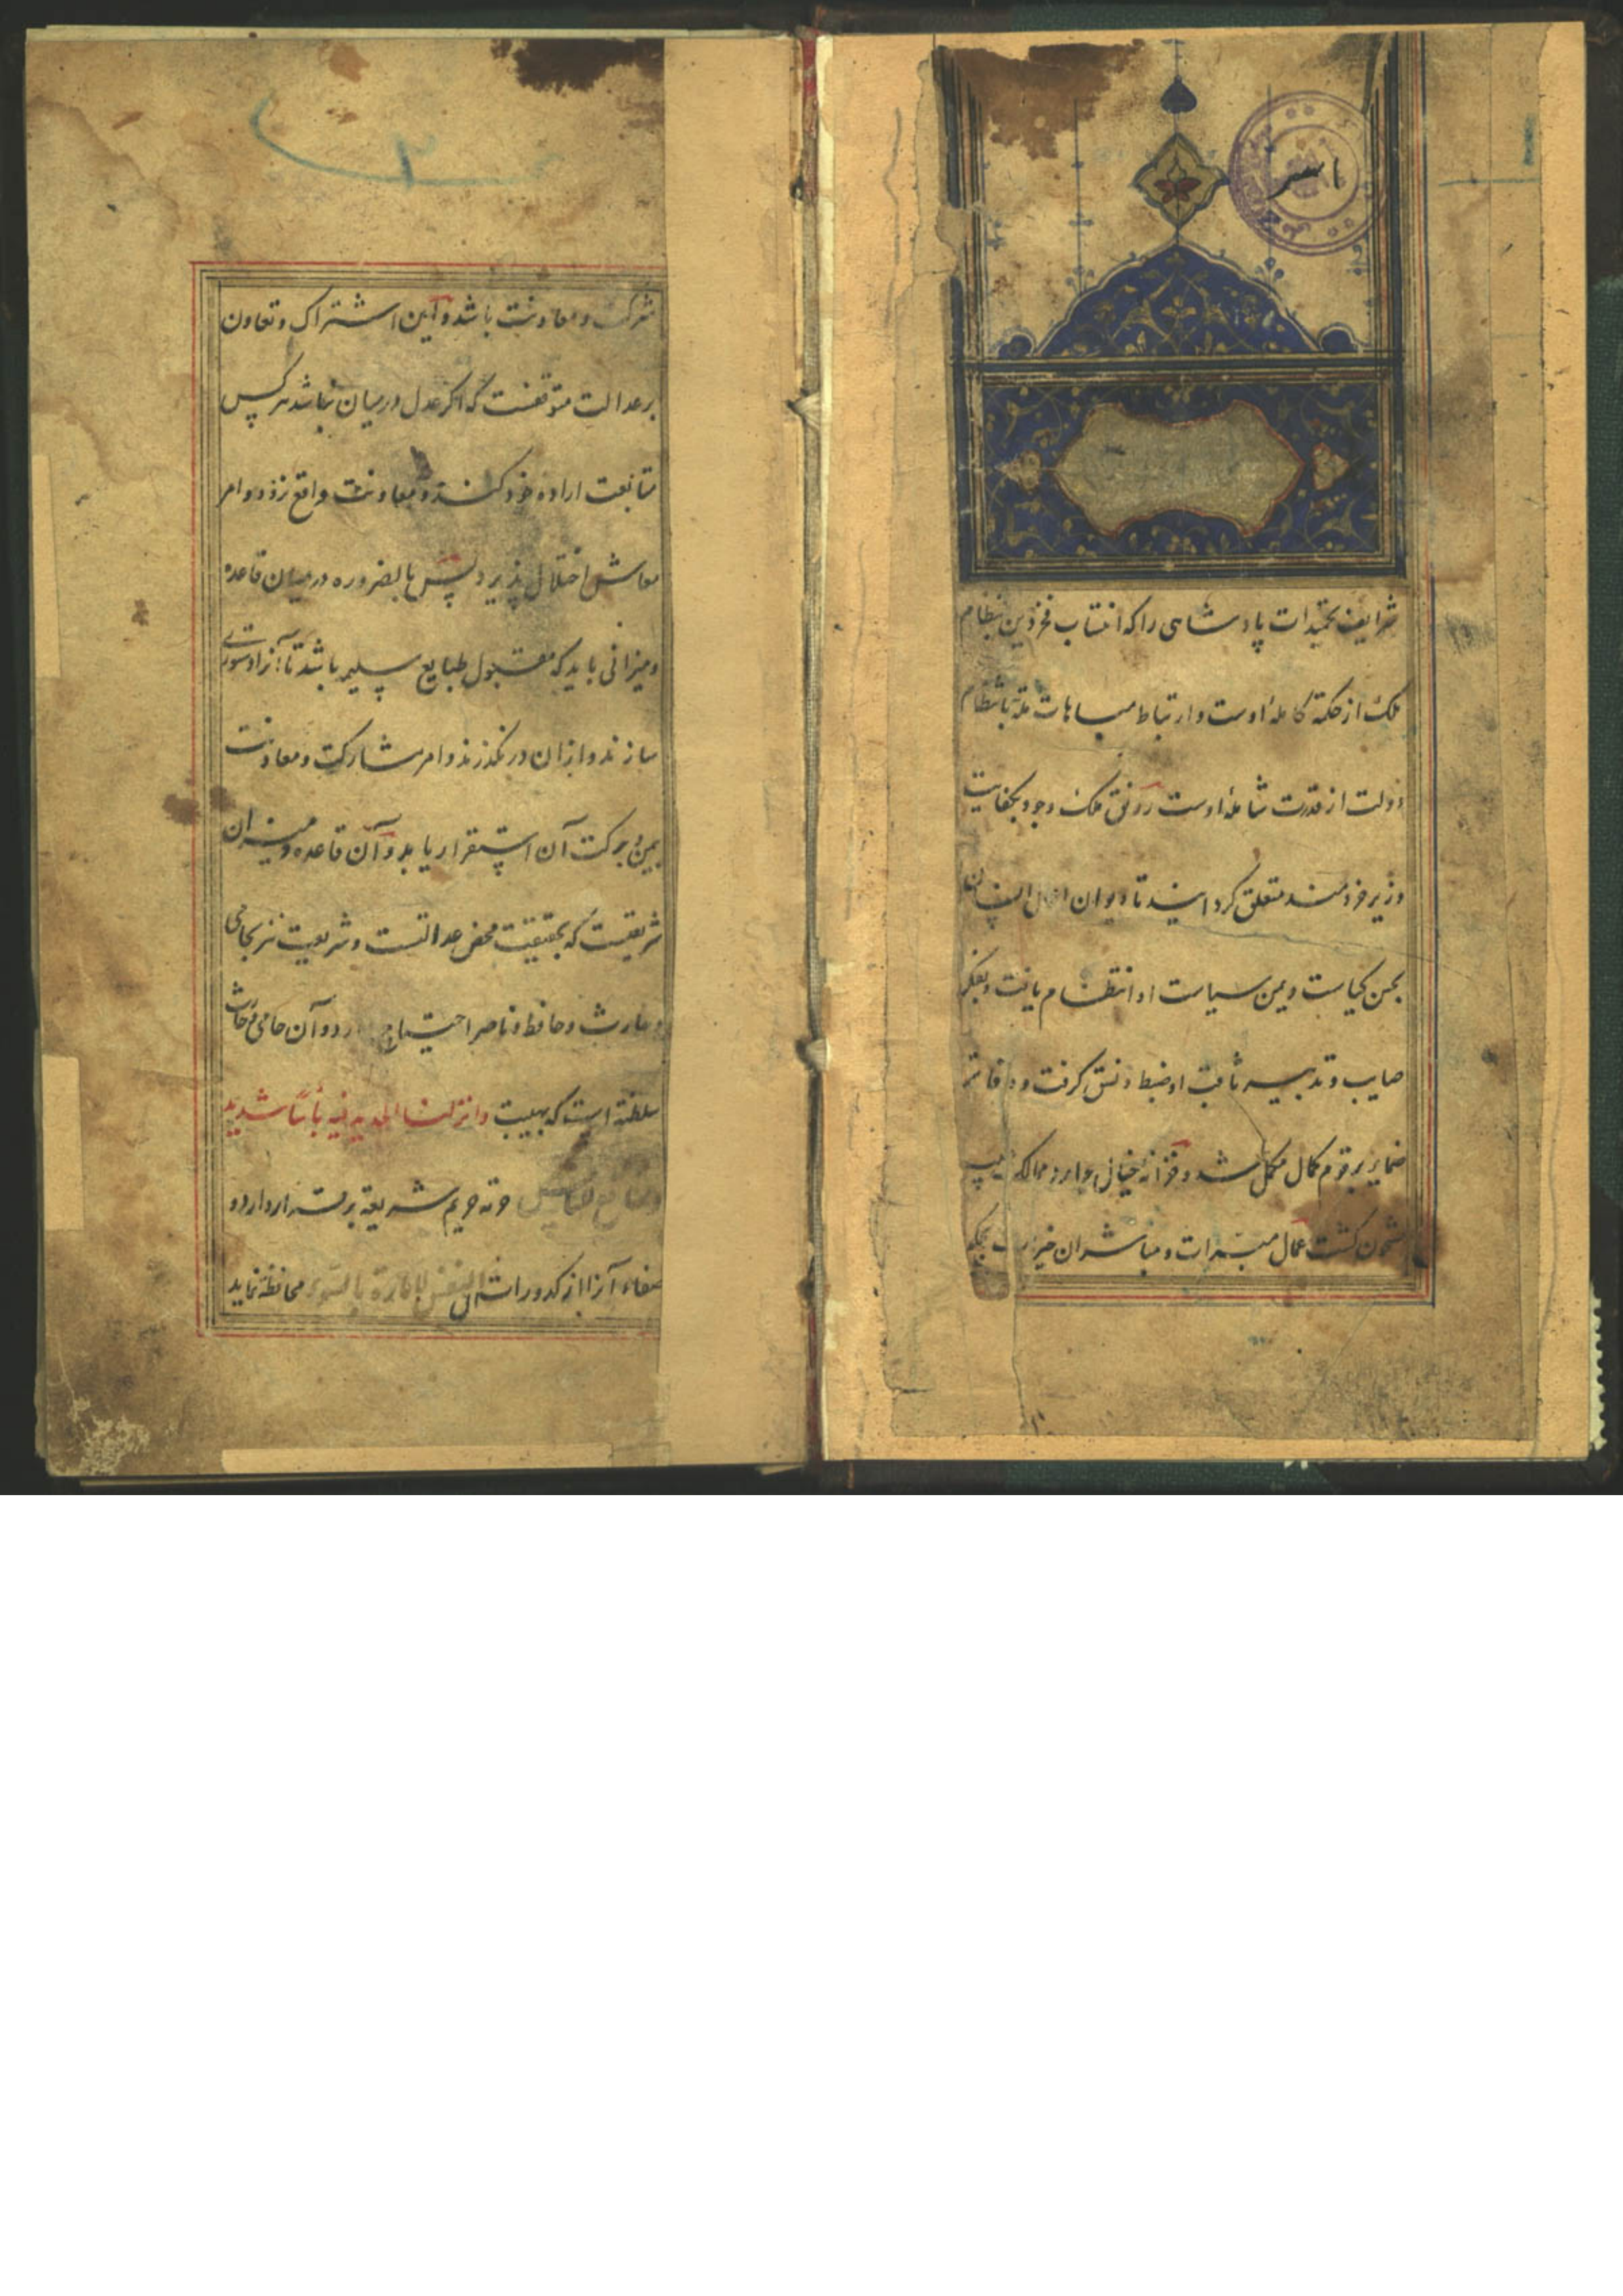 شرایف تحمیدات پادشاهی را که انتساب فخر دین بنظام
ملک از حکمة کامله اوست و ارتباط مباهات ملة بانتظام
دولت از قدرت شامله اوست رونق ملک وجود بکفایت
وزیر خردمند متعلق کردانید تا دیوان
بحسن کیاست و یمن سیاست او انتظام یافت و بفکر
صایب و تدبیر ثاقب او ضبط و نسق کرفت و دفاتر
ضمایر برقوم کمال مکمل شد و خزانه خیال
مشحون کشت عمال مبرات و مباشران
شرکت و معاونت باشد و این اشتراک و تعاون
بر عدالت متوقفست که اکر عدل در میان نباشد هرکس
متابعت اراده خود کند و معاونت واقع نشود و امر
معاش اختلال پذیرد پس بالضروره در میان قاعده
و میزانی باید که مقبول طبایع سلیم باشد تا آنرا دستوری
سازند و ازان در نکذرند و امر مشارکت و معاونت
بیمن و برکت آن استقرار یابد و آن قاعده و میزان
شریعتست که بحقیقت محض عدالتست و شریعت نیز بحامی
و حارث و حافظ و ناصر احتیاج دارد و آن حامی و حارث
سلطنة است که بهیبت وانزلنا الحدید فیه بأس شدید
حوزه حریم شریعة برقرار دارد و
صفاء آنرا از کدورات ان النفس لامارة بالسوء محافظة نماید